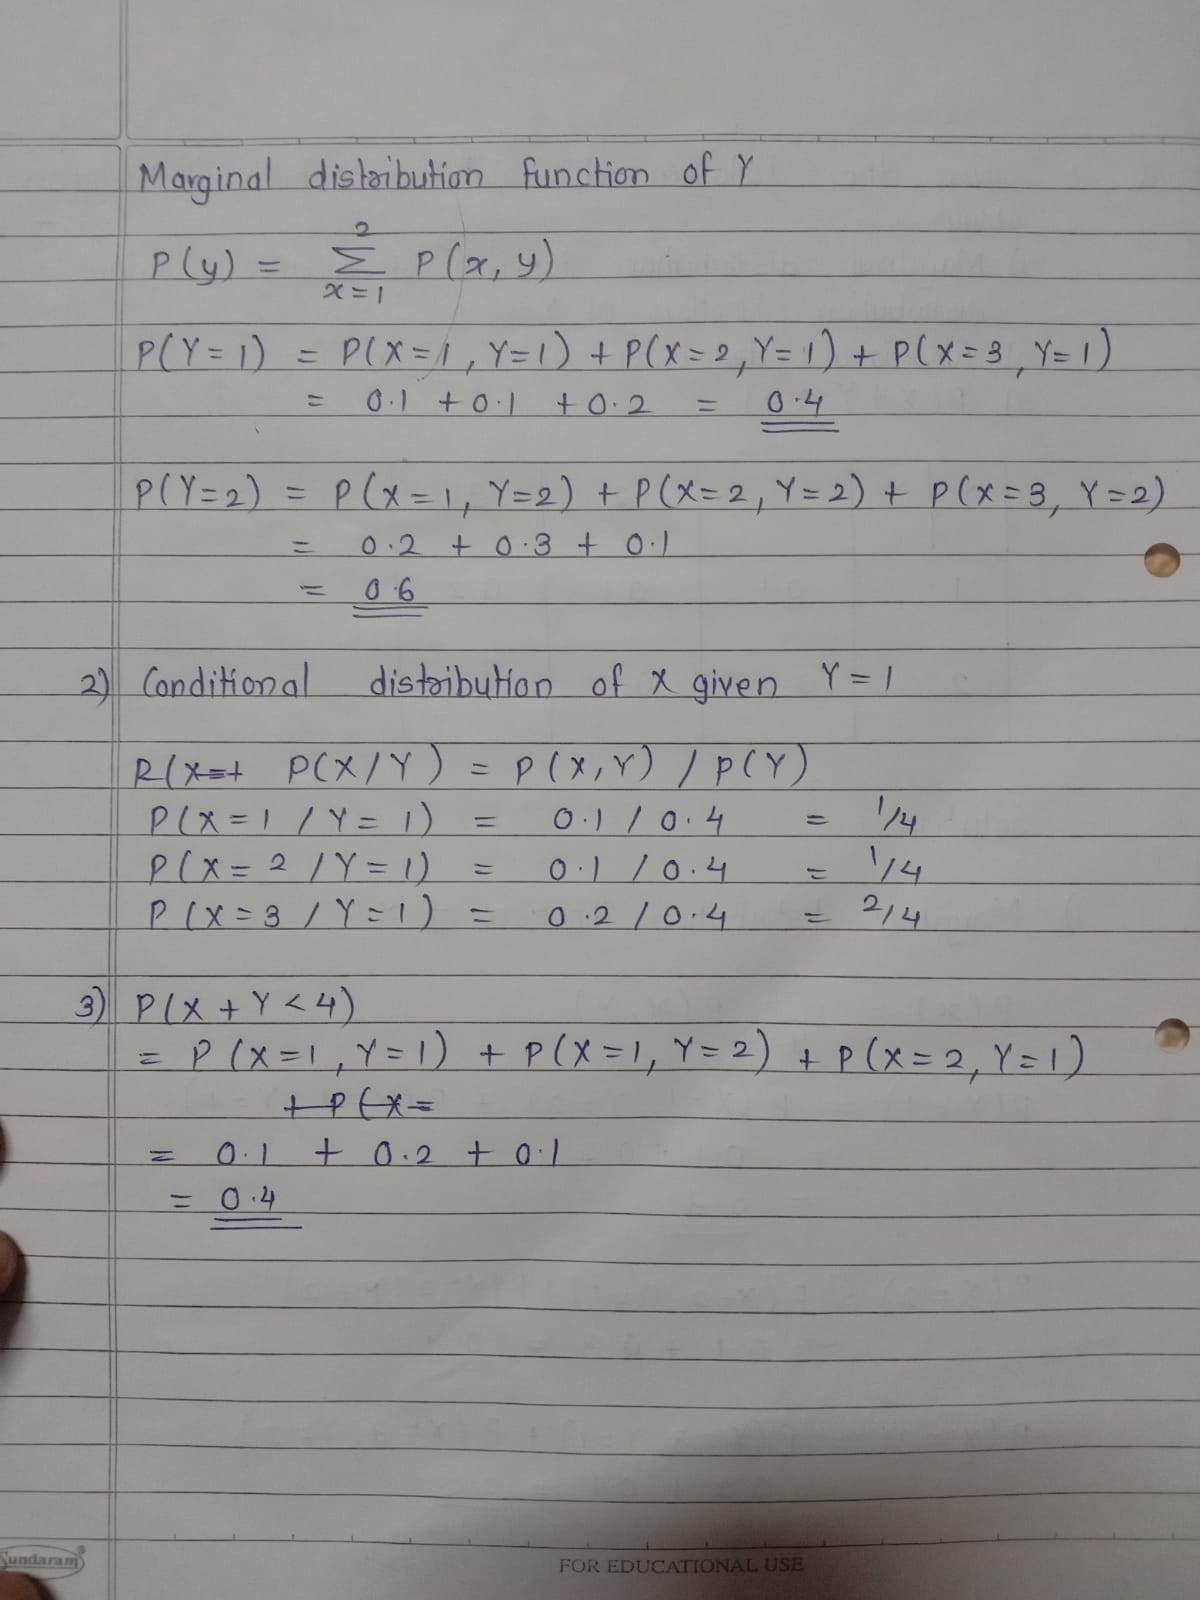 Marginal distribution function of Y
2
P(y) = Σ P(x, y)
x=1
P(Y=1) = P(X=1, Y=1) + P(X=2, Y=1) + P(X=3, Y=1)
= 0.1 + 0.1 + 0.2 = 0.4
P(Y=2) = P(X=1, Y=2) + P(X=2, Y=2) + P(X=3, Y=2)
= 0.2 + 0.3 + 0.1
= 0.6
2) Conditional distribution of X given Y=1
P(X/Y) = P(X,Y) / P(Y)
P(X=1 / Y=1) = 0.1 / 0.4 = 1/4
P(X=2 / Y=1) = 0.1 / 0.4 = 1/4
P(X=3 / Y=1) = 0.2 / 0.4 = 2/4
3) P(X + Y < 4)
= P(X=1, Y=1) + P(X=1, Y=2) + P(X=2, Y=1)
+ P(X=
= 0.1 + 0.2 + 0.1
= 0.4
Sundaram
FOR EDUCATIONAL USE